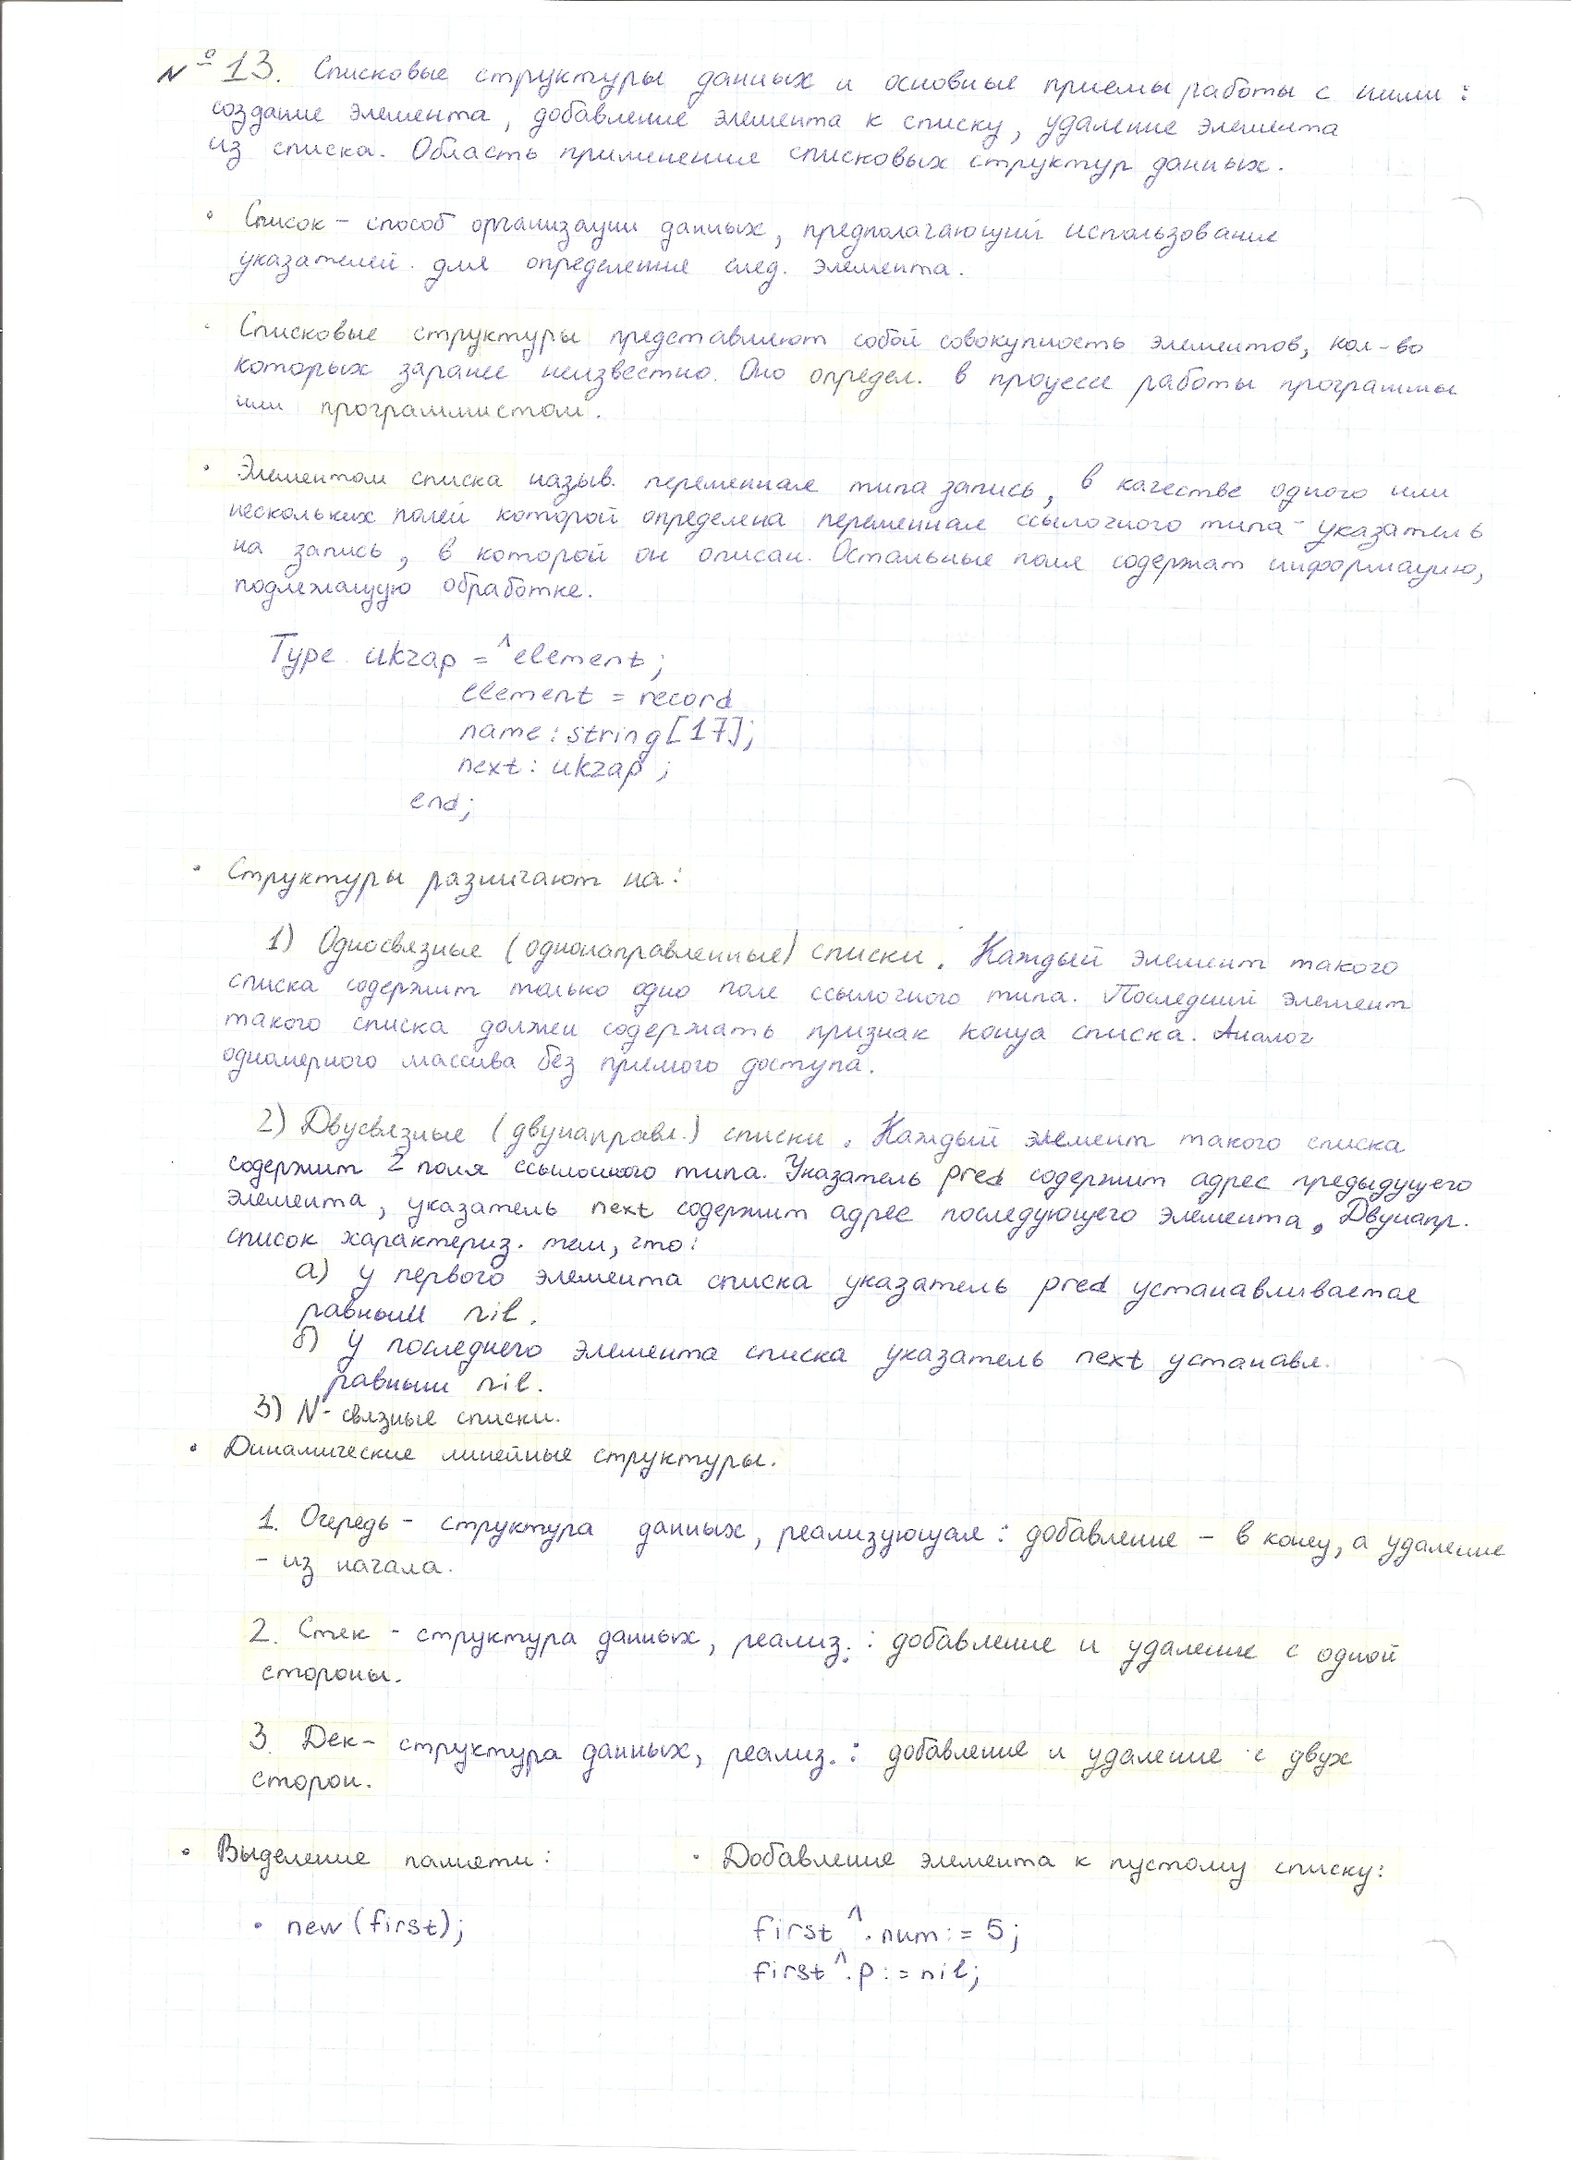 № 13. Списковые структуры данных и основные приемы работы с ними:
создание элемента, добавление элемента к списку, удаление элемента
из списка. Область применения списковых структур данных.
• Список – способ организации данных, предполагающий использование
указателей для определения след. элемента.
• Списковые структуры представляют собой совокупность элементов, кол-во
которых заранее неизвестно. Оно определ. в процессе работы программы
или программистом.
• Элементом списка назыв. переменная типа запись, в качестве одного или
нескольких полей которой определена переменная ссылочного типа - указатель
на запись, в которой он описан. Остальные поля содержат информацию,
подлежащую обработке.
Type ukzap = ^element;
element = record
name: string[17];
next: ukzap;
end;
• Структуры различают на:
1) Односвязные (однонаправленные) списки. Каждый элемент такого
списка содержит только одно поле ссылочного типа. Последний элемент
такого списка должен содержать признак конца списка. Аналог
одномерного массива без прямого доступа.
2) Двусвязные (двунаправл.) списки. Каждый элемент такого списка
содержит 2 поля ссылочного типа. Указатель pred содержит адрес предыдущего
элемента, указатель next содержит адрес последующего элемента. Двунапр.
список характериз. тем, что:
а) у первого элемента списка указатель pred устанавливается
равным nil.
б) у последнего элемента списка указатель next устанавл.
равным nil.
3) N-связные списки.
• Динамические линейные структуры.
1. Очередь - структура данных, реализующая: добавление - в конец, а удаление
- из начала.
2. Стек - структура данных, реализ.: добавление и удаление с одной
стороны.
3. Дек - структура данных, реализ.: добавление и удаление с двух
сторон.
• Выделение памяти:
• new(first);
• Добавление элемента к пустому списку:
first^.num:= 5;
first^.p:= nil;